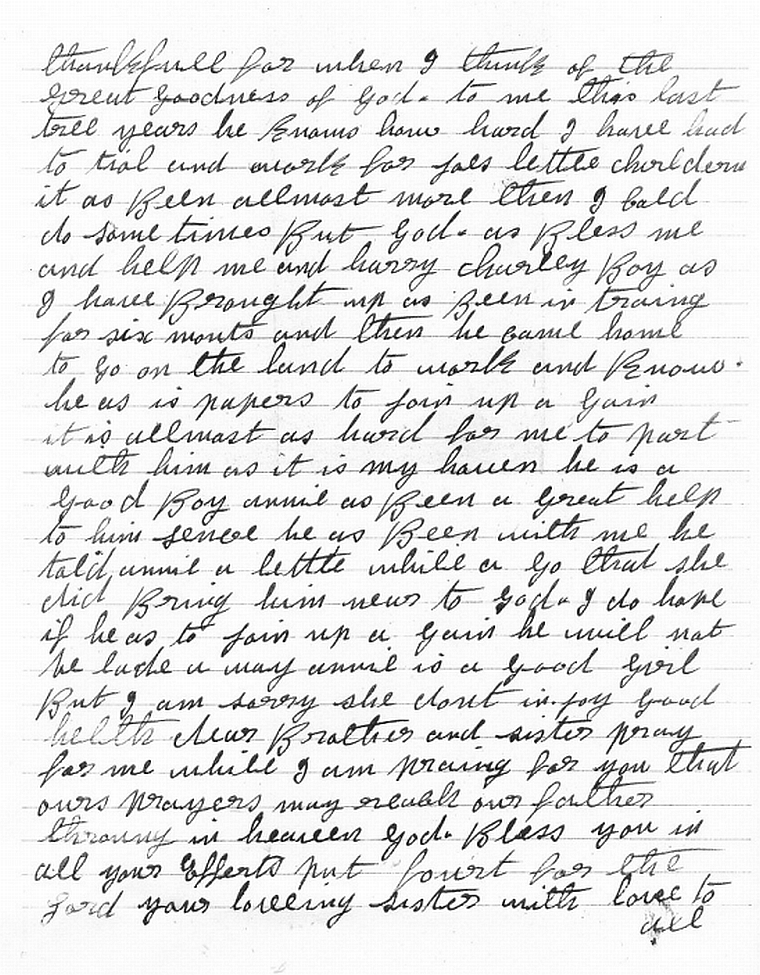 thankfull for when I think of the
great goodness of God. to me this last
tree years he knows how hard I have had
to tial and work for joes lettle childern
it as Been allmost more then I cold
do some times But God. as Bless me
and help me and harry charley Boy as
I have Brought up as Been in traing
for six monts and then he came home
to go on the land to work and know.
he as is papers to join up a gain
it is allmost as hard for me to part
with him as it is my hown he is a
good Boy annie as Been a great help
to him sence he as Been with me he
told annie a lettle while a go that she
did Bring him near to God. I do hope
if he as to join up a gain he will not
be lade a way annie is a good girl
But I am sorry she dont in.joy good
helth dear Brother and sister pray
for me while I am praing for you that
ours prayers may reach our father
throung in heaven God. Bless you in
all your Efferts put fourt for the
Lord your loveing sister with love to
all